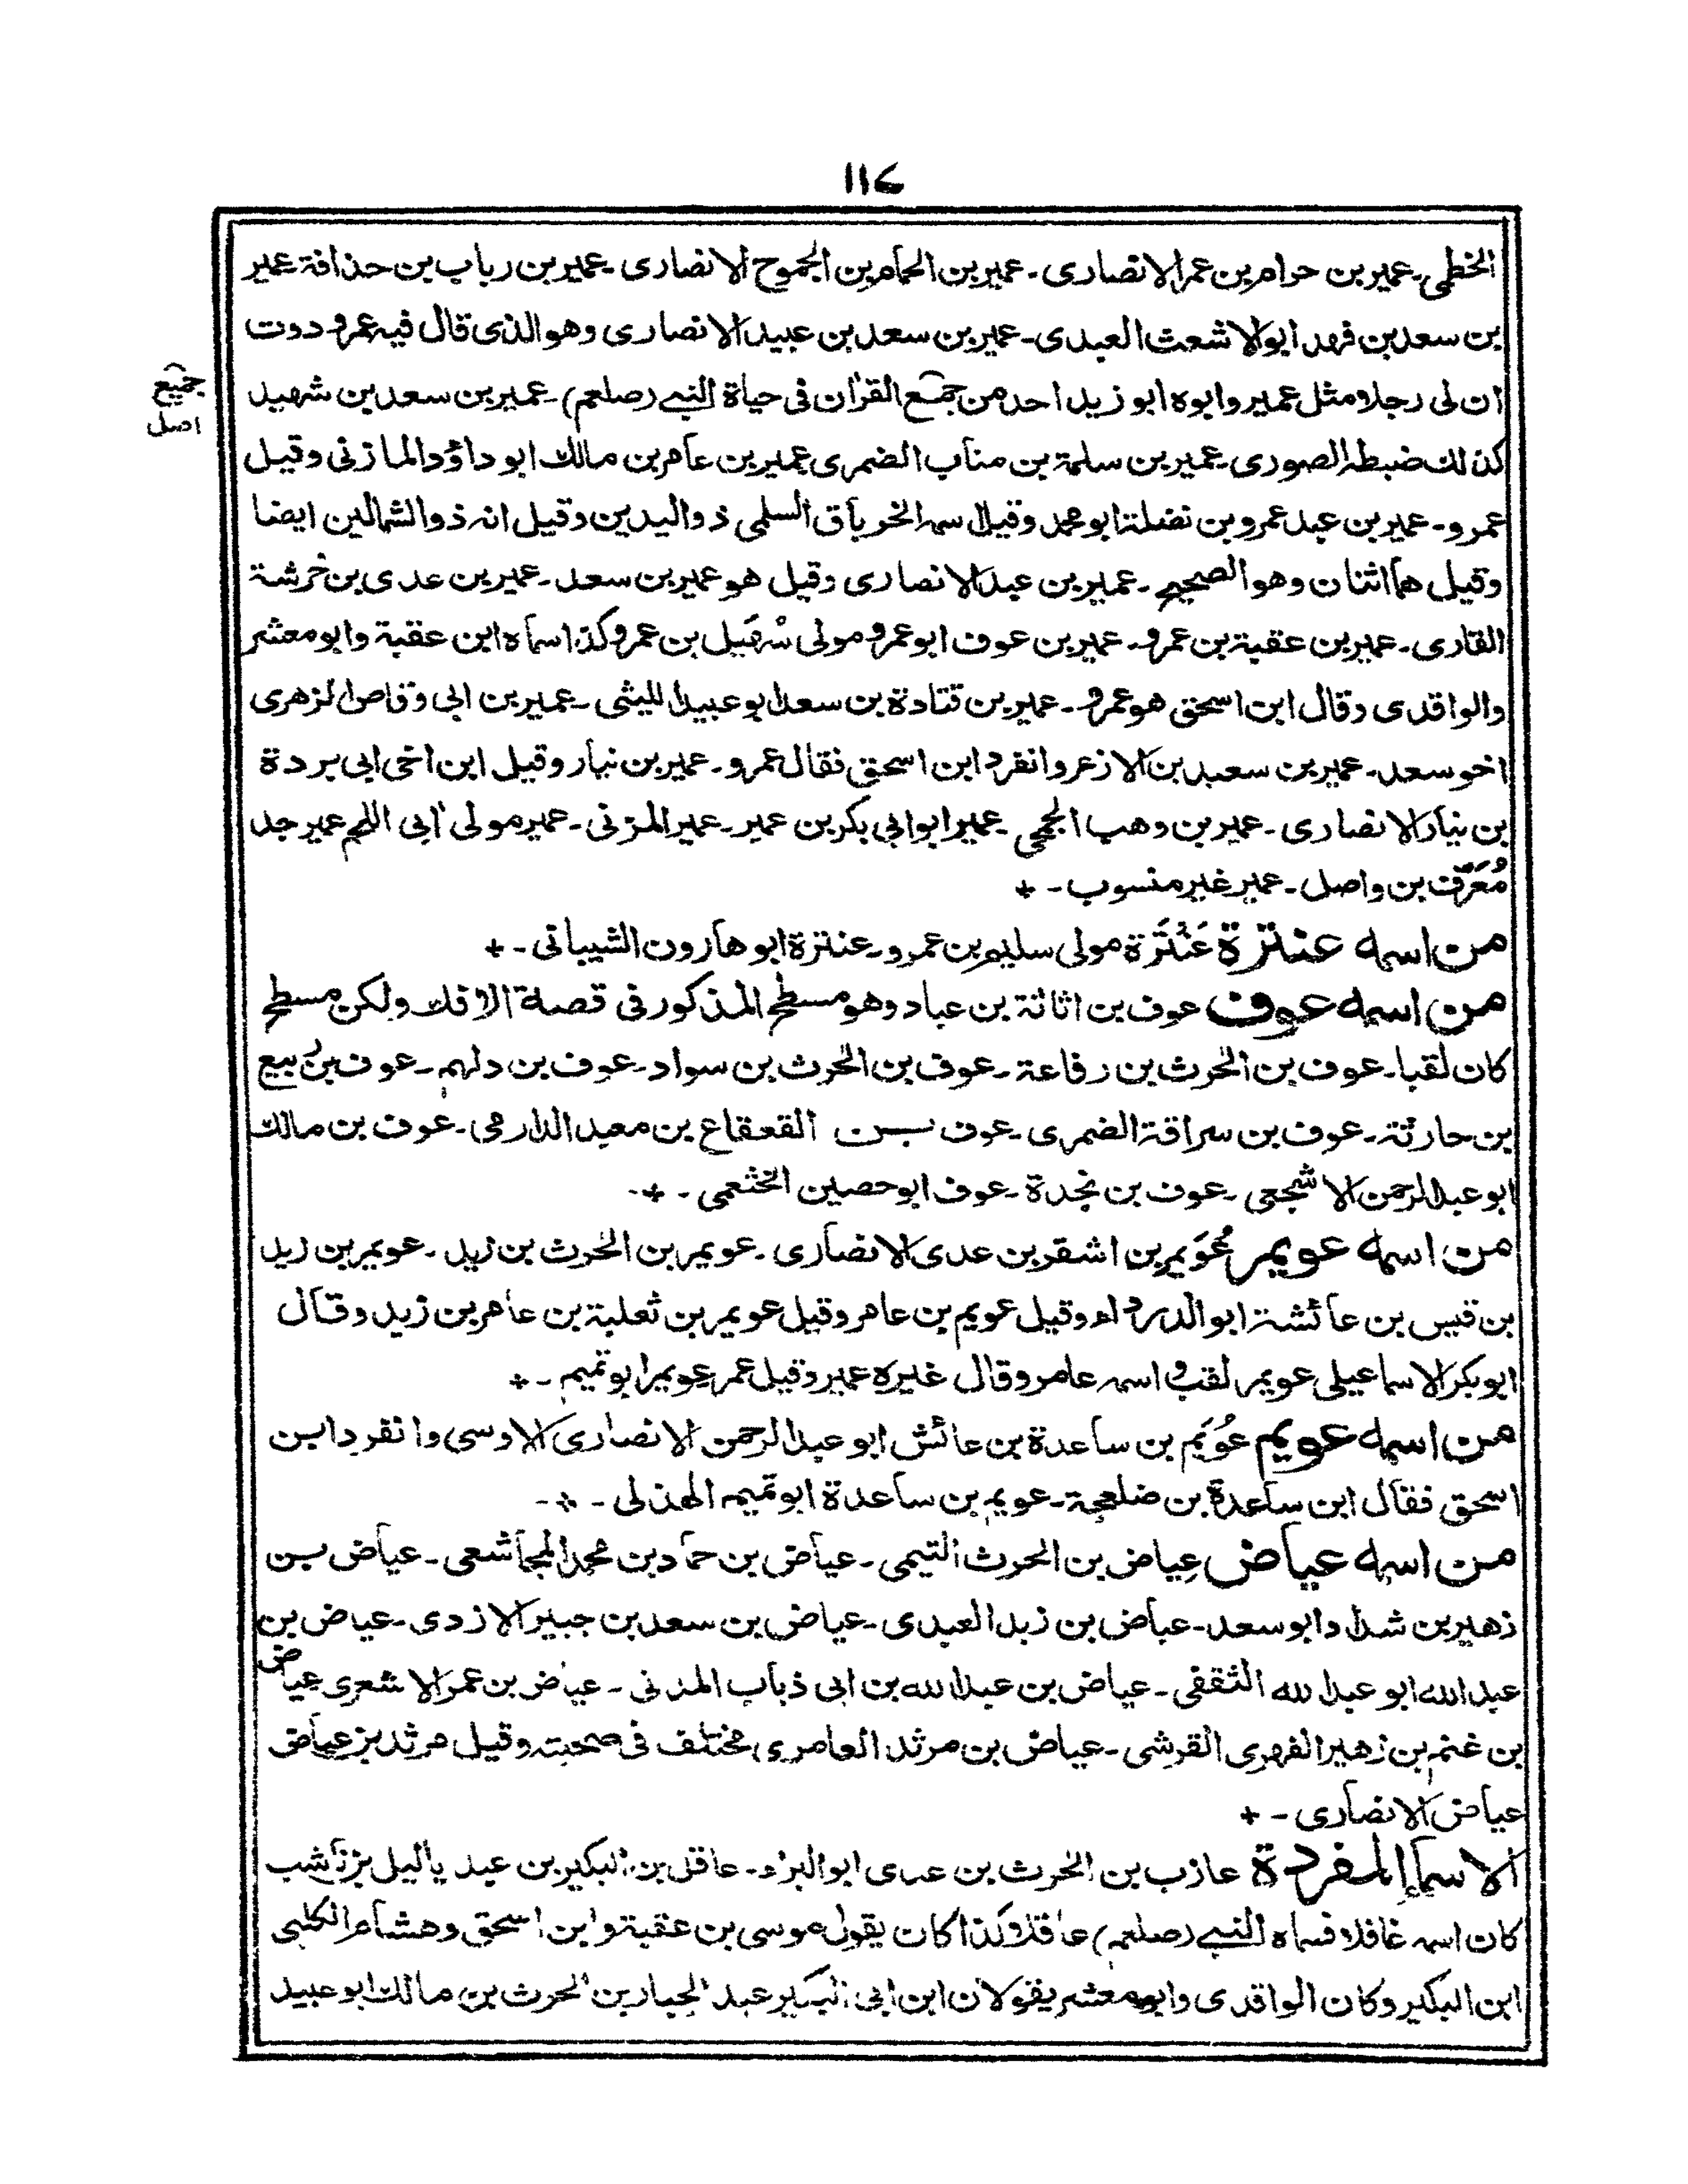 ١١٤
الخطمى۔عمير بن حرام بن عمرالانصارى۔عمير بن الحمام بن الجموح الانصارى۔عمير بن رباب بن حذافة عمير
بن سعد بن فهد ابوالاشعث العبدى۔عمير بن سعد بن عبيد الانصارى وهوالذى قال فيه عمر وددت
ان لى رجلا مثل عمير وابوه ابو زيد احد من جمع القرأن فى حياة النبى (صلعم)۔عمير بن سعد بن شهيد
جميع
اصل
كذلك ضبطه الصورى۔عمير بن سلمة بن مناب الضمرى عمير بن عامر بن مالك ابو داؤد المازنى وقيل
عمرو۔عمير بن عبد عمرو بن نضلة ابو محمد وقيل اسمه الخرباق السلمى ذواليدين وقيل انه ذوالشمالين ايضا
وقيل هما اثنان وهوالصحيح۔عمير بن عبدالانصارى وقيل هو عمير بن سعد۔عمير بن عدى بن خرشة
القارى۔عمير بن عقبة بن عمرو۔عمير بن عوف ابو عمرو مولى سُهَيل بن عمرو كذا سماه ابن عقبة وابو معشر
والواقدى وقال ابن اسحق هو عمرو۔عمير بن قتادة بن سعد ابو عبيد الليثى۔عمير بن ابى وقاص الزهرى
اخو سعد۔عمير بن سعيد بن الازعر وانفرد ابن اسحق فقال عمرو۔عمير بن نيار وقيل ابن اخى ابى بردة
بن نيار الانصارى۔عمير بن وهب الجمحى۔عمير ابو ابى بكر بن عمير۔عمير المزنى۔عمير مولى أبى اللحم عمير جد
مُعَرِّف بن واصل۔عمير غير منسوب۔+
من اسمه عنترة عَنْتَرَة مولى سليم بن عمرو۔عنترة ابو هارون الشيبانى۔+
من اسمه عوف عوف بن اثاثة بن عباد وهو مسطح المذكور فى قصة الافك ولكن مسطح
كان لقبا۔عوف بن الحرث بن رفاعة۔عوف بن الحرث بن سواد۔عوف بن دلهم۔عوف بن ربيع
بن حارثة۔عوف بن سراقة الضمرى۔عوف بن القعقاع بن معبد الدارمى۔عوف بن مالك
ابو عبدالرحمن الاشجعى۔عوف بن نجدة۔عوف ابو حصين الخثعمى۔+۔
من اسمه عويمر عُوَيمر بن اشقر بن عدى الانصارى۔عويمر بن الحرث بن زيد۔عويمر بن زيد
بن قيس بن عائشة ابوالدرداء وقيل عويمر بن عامر وقيل عويمر بن ثعلبة بن عامر بن زيد وقال
ابوبكر الاسماعيلى عويمر لقب واسمه عامر وقال غيره عمير وقيل عمر عويمر ابو تميم۔+
من اسمه عويم عُوَيَم بن ساعدة بن عائش ابو عبدالرحمن الانصارى الاوسى وانفرد ابن
اسحق فقال ابن ساعدة بن ضلعجة۔عويم بن ساعدة ابو تميم الهذلى۔+۔
من اسمه عياض عِياض بن الحرث التيمى۔عياض بن حماد بن محمد المجاشعى۔عياض بن
زهير بن شداد ابو سعد۔عياض بن زيد العبدى۔عياض بن سعد بن جبير الازدى۔عياض بن
عبدالله ابو عبدالله الثقفى۔عياض بن عبدالله بن ابى ذباب المدنى۔عياض بن عمر الاشعرى عياض
بن غنم بن زهير الفهرى القرشى۔عياض بن مرثد العامرى مختلف فى صحبته وقيل مرثد بن عياض
عياض الانصارى۔+
الاسماء المفردة عازب بن الحرث بن عدى ابوالبراء۔عاقل بن البكير بن عبد ياليل بن ناشب
كان اسمه غافلا فسماه النبى (صلعم) عاقلا وكذا كان يقول موسى بن عقبة وابن اسحق وهشام الكلبى
ابن البكير وكان الواقدى وابو معشر يقولان ابن ابى البكير عبد الجبار بن الحرث بن مالك ابو عبيد